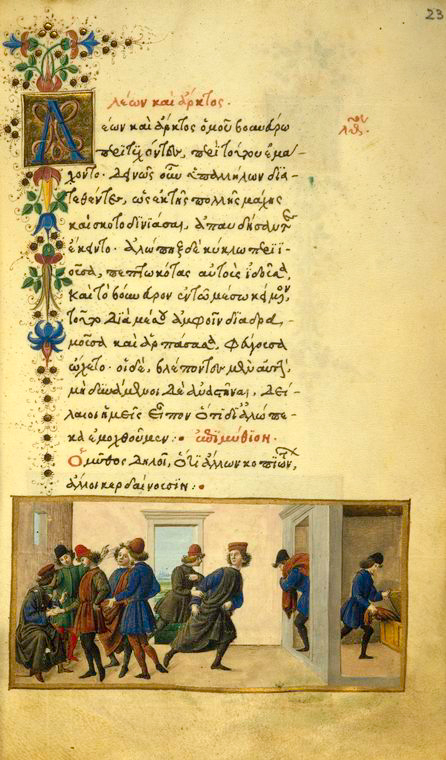 23
Λέων καὶ ἄρκτος.
Λέων καὶ ἄρκτος ὁμοῦ
περιτυχόντες, περὶ τούτου ἐμά-
χοντο. δεινῶς οὖν ὑπ' ἀλλήλων δια-
τεθέντες, ὡς ἐκ τῆς πολλῆς μάχης
καὶ σκοτοδινιᾶσαι, ἀπαυδήσαντες
ἔκειντο. ἀλώπηξ δὲ κύκλῳ περιϊ-
οῦσα, πεπτωκότας αὐτοὺς ἰδοῦσα,
καὶ τὸ ἐν τῷ μέσῳ κείμενον,
τοῦτο διὰ μέσου ἀμφοῖν διαδρα-
μοῦσα καὶ ἁρπάσασα, φεύγουσα
ᾤχετο. οἱ δὲ, βλέποντες μὲν αὐτὴν,
μὴ δυνάμενοι δὲ ἀναστῆναι, δεί-
λαιοι ἡμεῖς εἶπον ὅτι δι' ἀλώπε-
κα ἐμοχθοῦμεν: ἐπιμύθιον.
Ὁ μῦθος δηλοῖ, ὅτι ἄλλων κοπιώντων,
ἄλλοι κερδαίνουσιν: